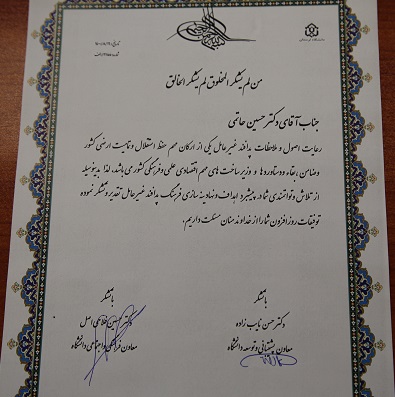 من لم یشکر المخلوق لم یشکر الخالق
جناب آقای دکتر حسین حاتمی
رعایت اصول و ملاحظات پدافند غیرعامل یکی از ارکان مهم حفظ استقلال و تمامیت ارضی کشور
وضامن بقاء دستاوردها و زیرساخت های مهم اقتصادی علمی و فرهنگی کشور می باشد، لذا بدینوسیله
از تلاش و توانمندی شما در پیشبرد اهداف و نهادینه سازی فرهنگ پدافند غیرعامل تقدیر و تشکر نموده
توفیقات روزافزون شما را از خداوند منان مسئلت داریم.
باتشکر
دکتر حسن نایب زاده
معاون پشتیبانی و توسعه دانشگاه
باتشکر
دکتر اصل
معاون فرهنگی و اجتماعی دانشگاه